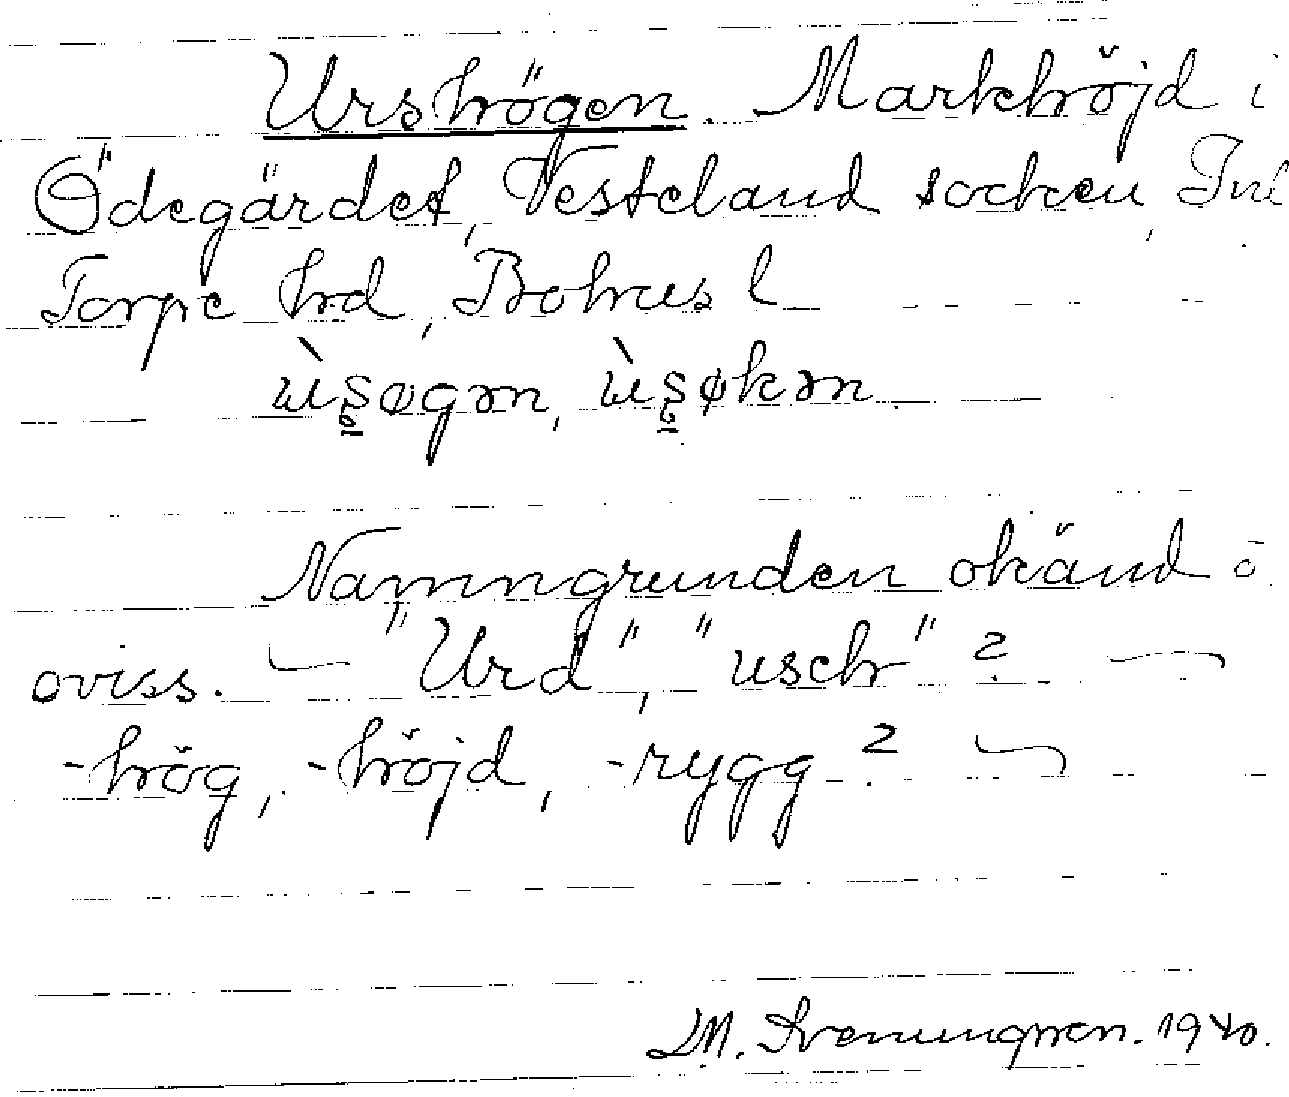 Urshögen. Markhöjd i
Ödegärdet, Vesteland socken, Inl
Torpe hrd, Bohusl
Namngrunden okänd o
oviss. — "Urd", "usch" ? —
-hög, -höjd, -rygg ? —
M. Svenungsson. 1940.